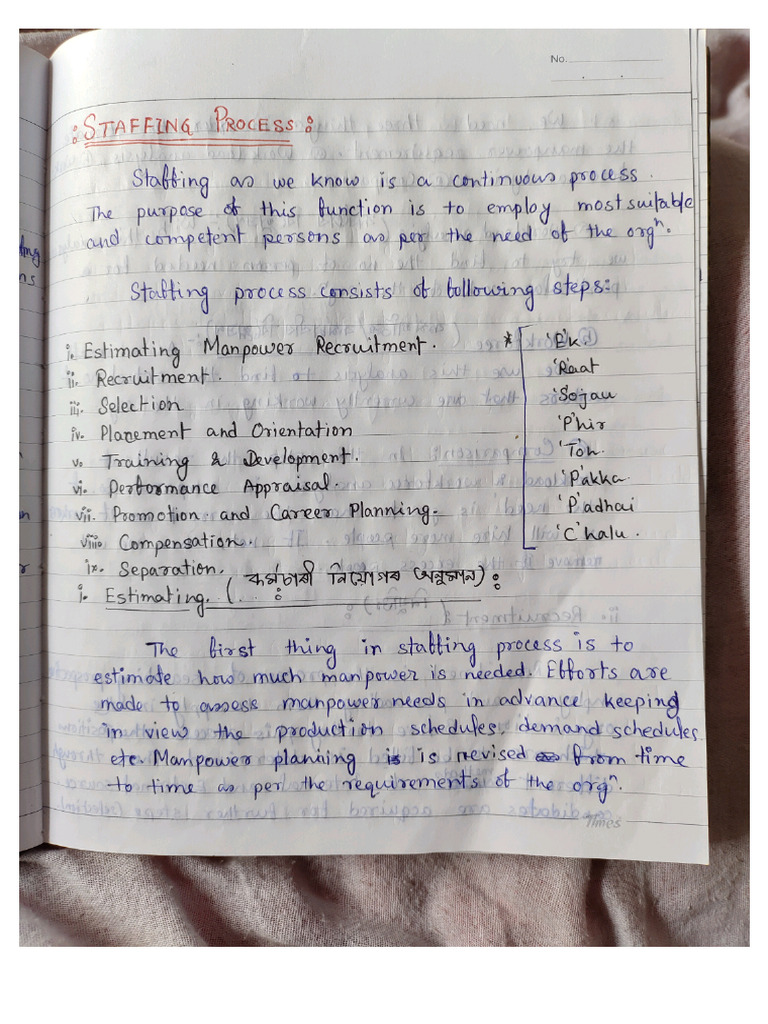 No.
: STAFFING PROCESS :
Staffing as we know is a continuous process.
The purpose of this function is to employ most suitable
and competent persons as per the need of the orgⁿ.
Staffing process consists of following steps:
i. Estimating Manpower Recruitment. * 'E'k
ii. Recruitment. 'R'aat
iii. Selection 'S'ojau
iv. Placement and Orientation 'P'hir
v. Training & Development. 'T'oh.
vi. Performance Appraisal. 'P'akka.
vii. Promotion and Career Planning. 'P'adhai
viii. Compensation. 'C'halu.
ix. Separation.
i. Estimating. (কৰ্মচাৰী নিয়োগৰ অনুমান) :
The first thing in staffing process is to
estimate how much manpower is needed. Efforts are
made to assess manpower needs in advance keeping
in view the production schedules, demand schedules
etc. Manpower planning is revised from time
to time as per the requirements of the orgⁿ.
Times